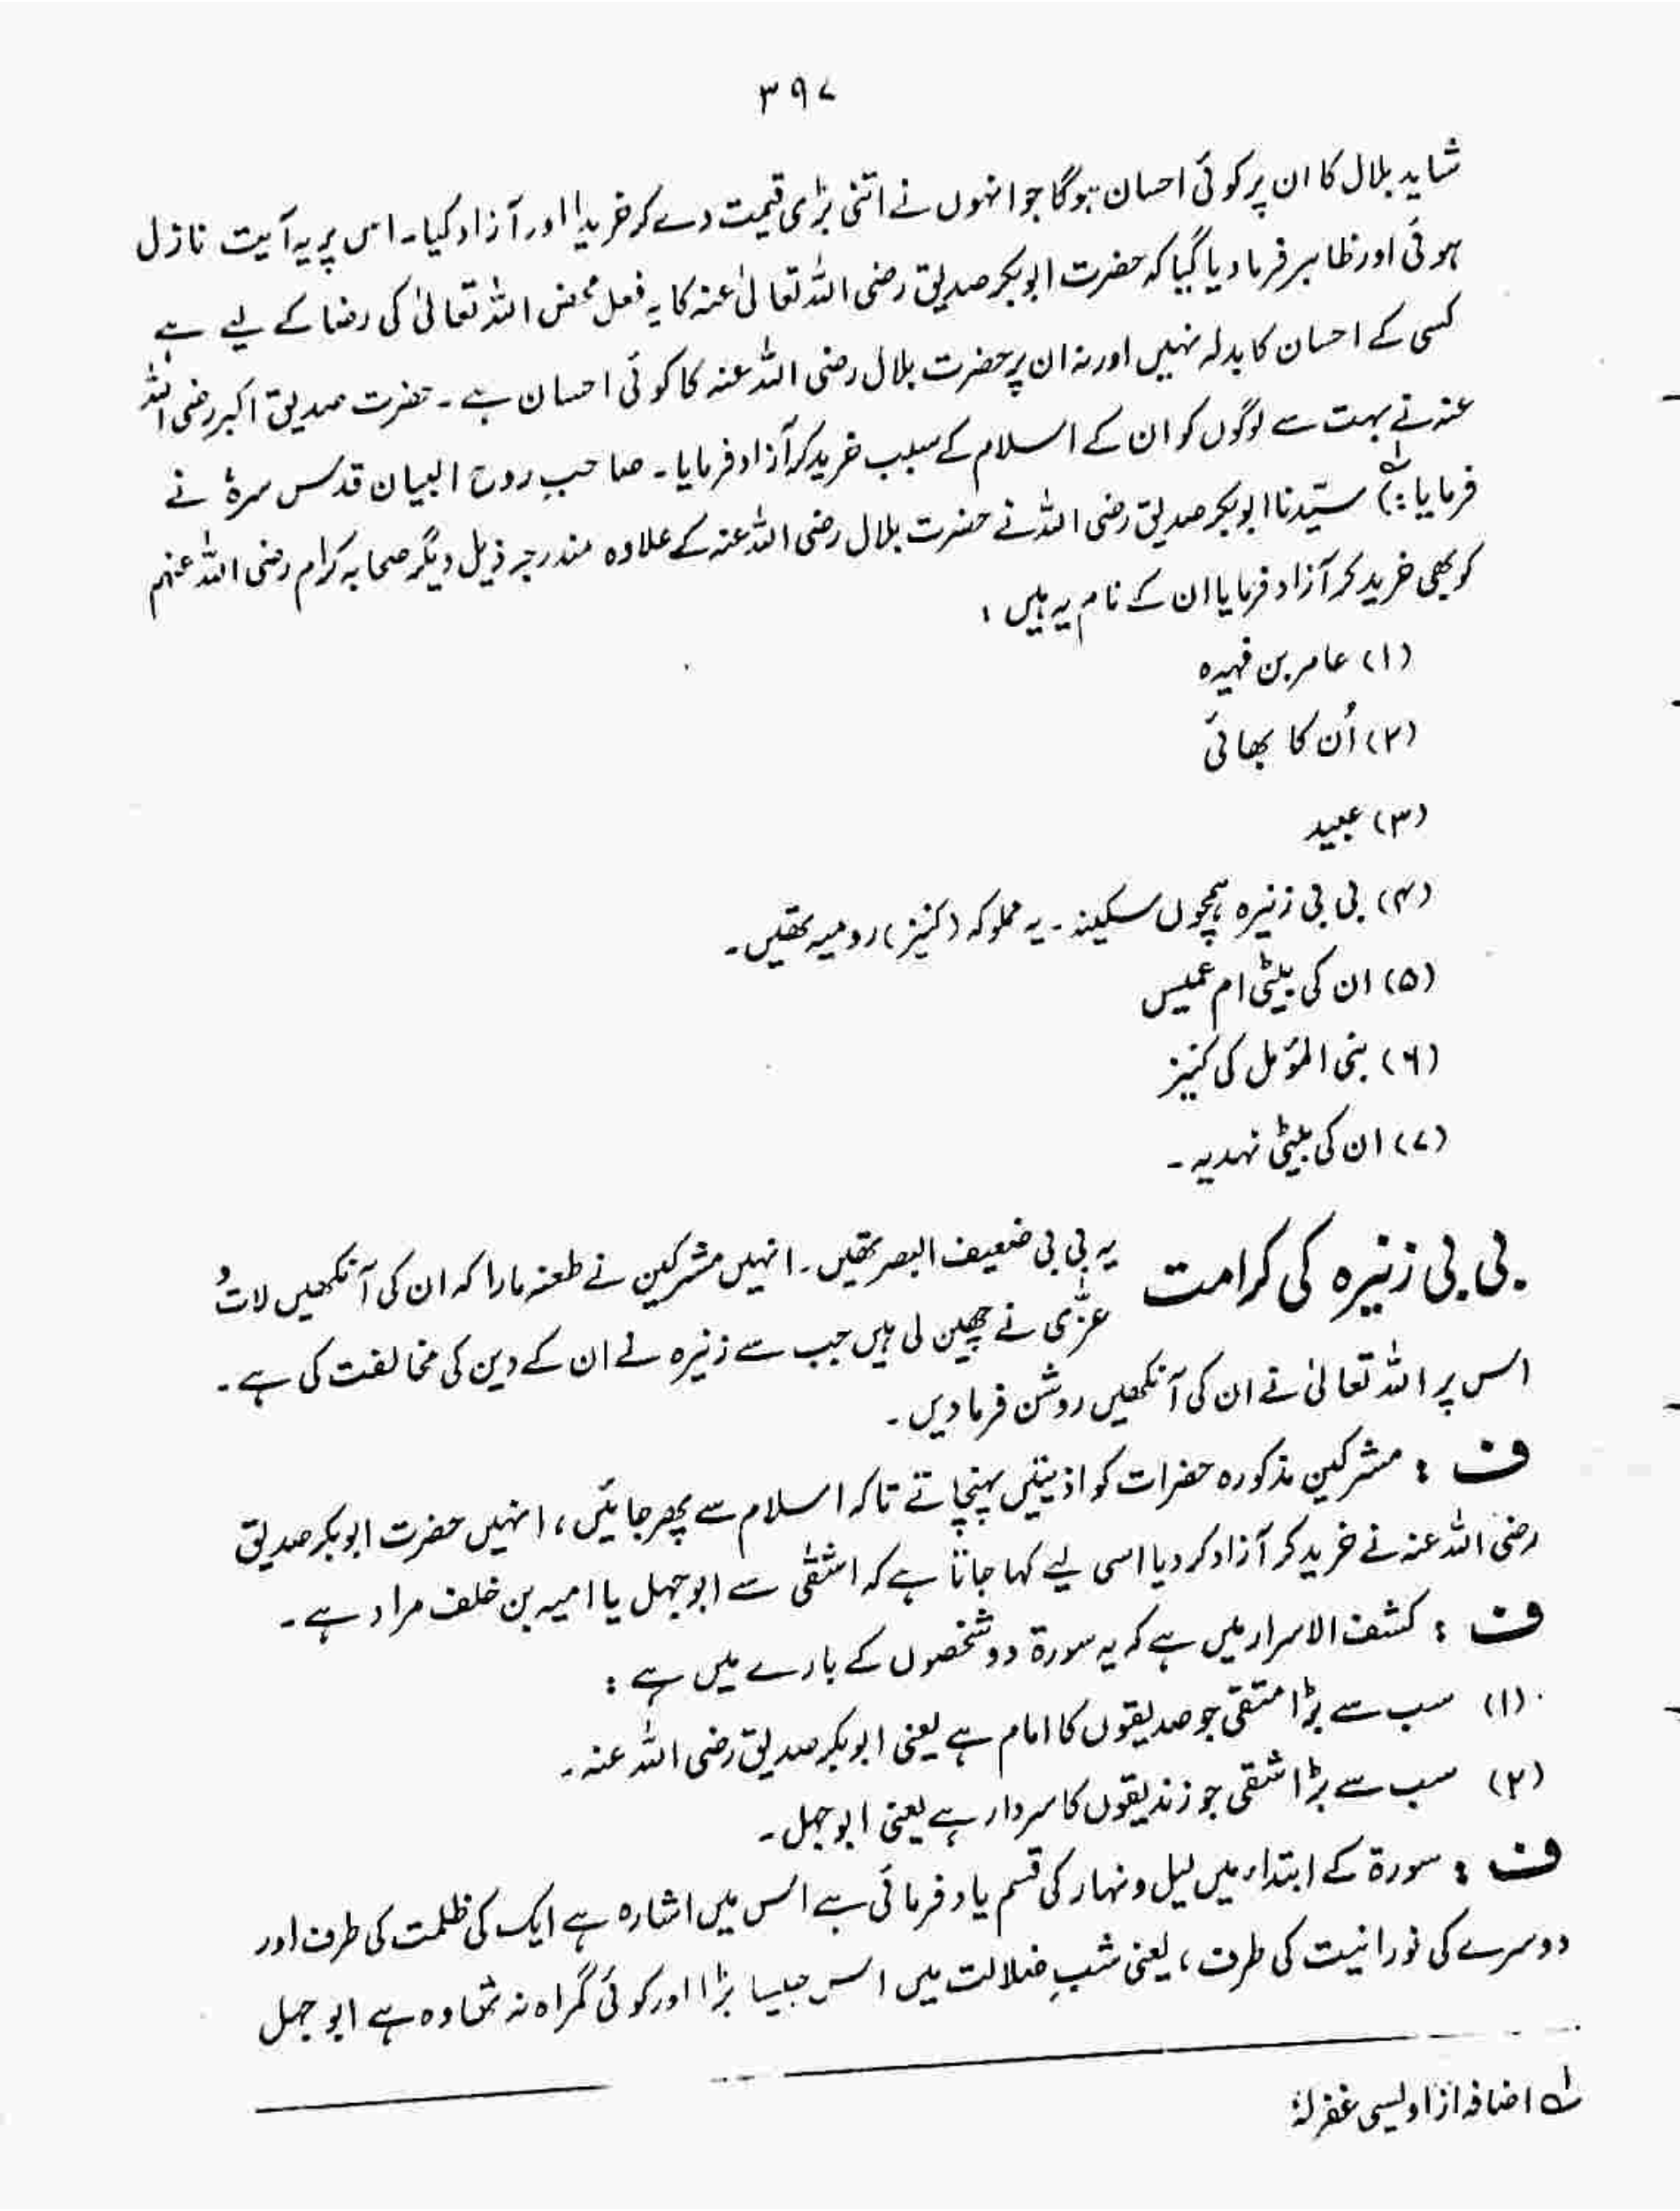 ۳۹۷
شاید بلال کا ان پر کوئی احسان ہوگا جو انہوں نے اتنی بڑی قیمت دے کر خریدا اور آزاد کیا۔ اس پر یہ آیت نازل
ہوئی اور ظاہر فرما دیا گیا کہ حضرت ابوبکر صدیق رضی اللہ تعالیٰ عنہ کا یہ فعل محض اللہ تعالیٰ کی رضا کے لیے ہے
کسی کے احسان کا بدلہ نہیں اور نہ ان پر حضرت بلال رضی اللہ عنہ کا کوئی احسان ہے۔ حضرت صدیق اکبر رضی اللہ
عنہ نے بہت سے لوگوں کو ان کے اسلام کے سبب خرید کر آزاد فرمایا۔ صاحبِ روح البیان قدس سرہٗ نے
فرمایا :) سیّدنا ابوبکر صدیق رضی اللہ نے حضرت بلال رضی اللہ عنہ کے علاوہ مندرجہ ذیل دیگر صحابہ کرام رضی اللہ عنہم
کو بھی خرید کر آزاد فرمایا ان کے نام یہ ہیں :
(۱) عامر بن فہیرہ
(۲) اُن کا بھائی
(۳) عبید
(۴) بی بی زنیرہ ہمچوں سکینہ۔ یہ مملوکہ (کنیز) رومیہ تھیں۔
(۵) ان کی بیٹی ام عمیس
(۶) بنی المؤمل کی کنیز
(۷) ان کی بیٹی نہدیہ۔
بی بی زنیرہ کی کرامت یہ بی بی ضعیف البصر تھیں۔ انہیں مشرکین نے طعنہ مارا کہ ان کی آنکھیں لات و
عزّٰی نے چھین لی ہیں جب سے زنیرہ نے ان کے دین کی مخالفت کی ہے۔
اس پر اللہ تعالیٰ نے ان کی آنکھیں روشن فرما دیں۔
ف : مشرکین مذکورہ حضرات کو اذیتیں پہنچاتے تاکہ اسلام سے پھر جائیں، انہیں حضرت ابوبکر صدیق
رضی اللہ عنہ نے خرید کر آزاد کر دیا اسی لیے کہا جاتا ہے کہ اشقٰی سے ابوجہل یا امیہ بن خلف مراد ہے۔
ف : کشف الاسرار میں ہے کہ یہ سورۃ دو شخصوں کے بارے میں ہے :
(۱) سب سے بڑا متقی جو صدیقوں کا امام ہے یعنی ابوبکر صدیق رضی اللہ عنہ۔
(۲) سب سے بڑا شقی جو زندیقوں کا سردار ہے یعنی ابوجہل۔
ف : سورۃ کے ابتداء میں لیل و نہار کی قسم یاد فرمائی ہے اس میں اشارہ ہے ایک کی ظلمت کی طرف اور
دوسرے کی نورانیت کی طرف، یعنی شبِ ضلالت میں اس جیسا بڑا اور کوئی گمراہ نہ تھا وہ ہے ابوجہل
لہ اضافہ از اویسی غفرلہٗ